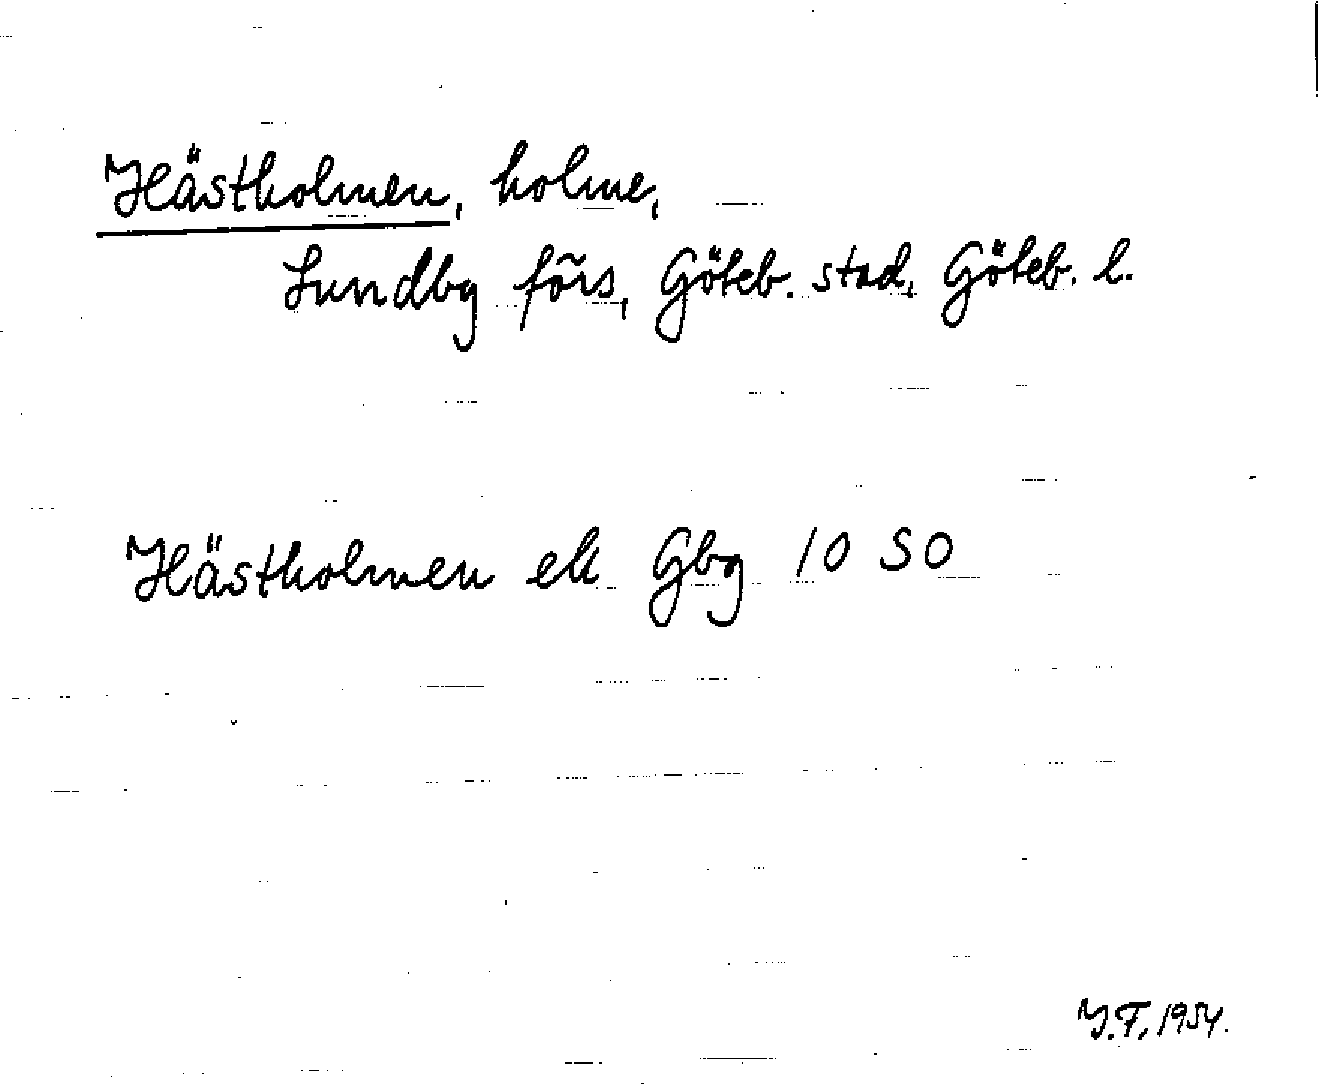 Hästholmen, holme,
Lundby förs, Göteb. stad, Göteb. l.
Hästholmen ek Gbg 10 SO
I.F. 1954.